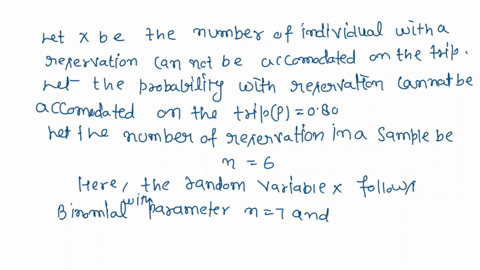 Let x be the number of individual with a
reservation can not be accomodated on the trip.
Let the probability with reservation cannot be
accomodated on the trip(P) = 0.80
Let the number of reservation in a sample be
n = 6
Here, the random variable x follows
Binomial with parameter n=7 and